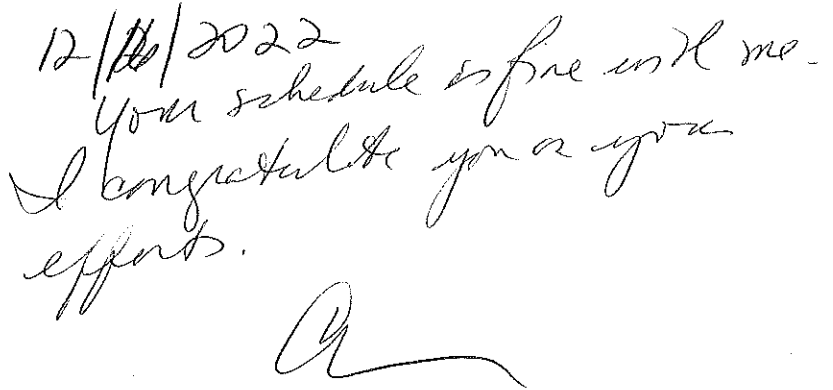 12/16/2022
Your schedule is fine with me.
I congratulate you on your
efforts.